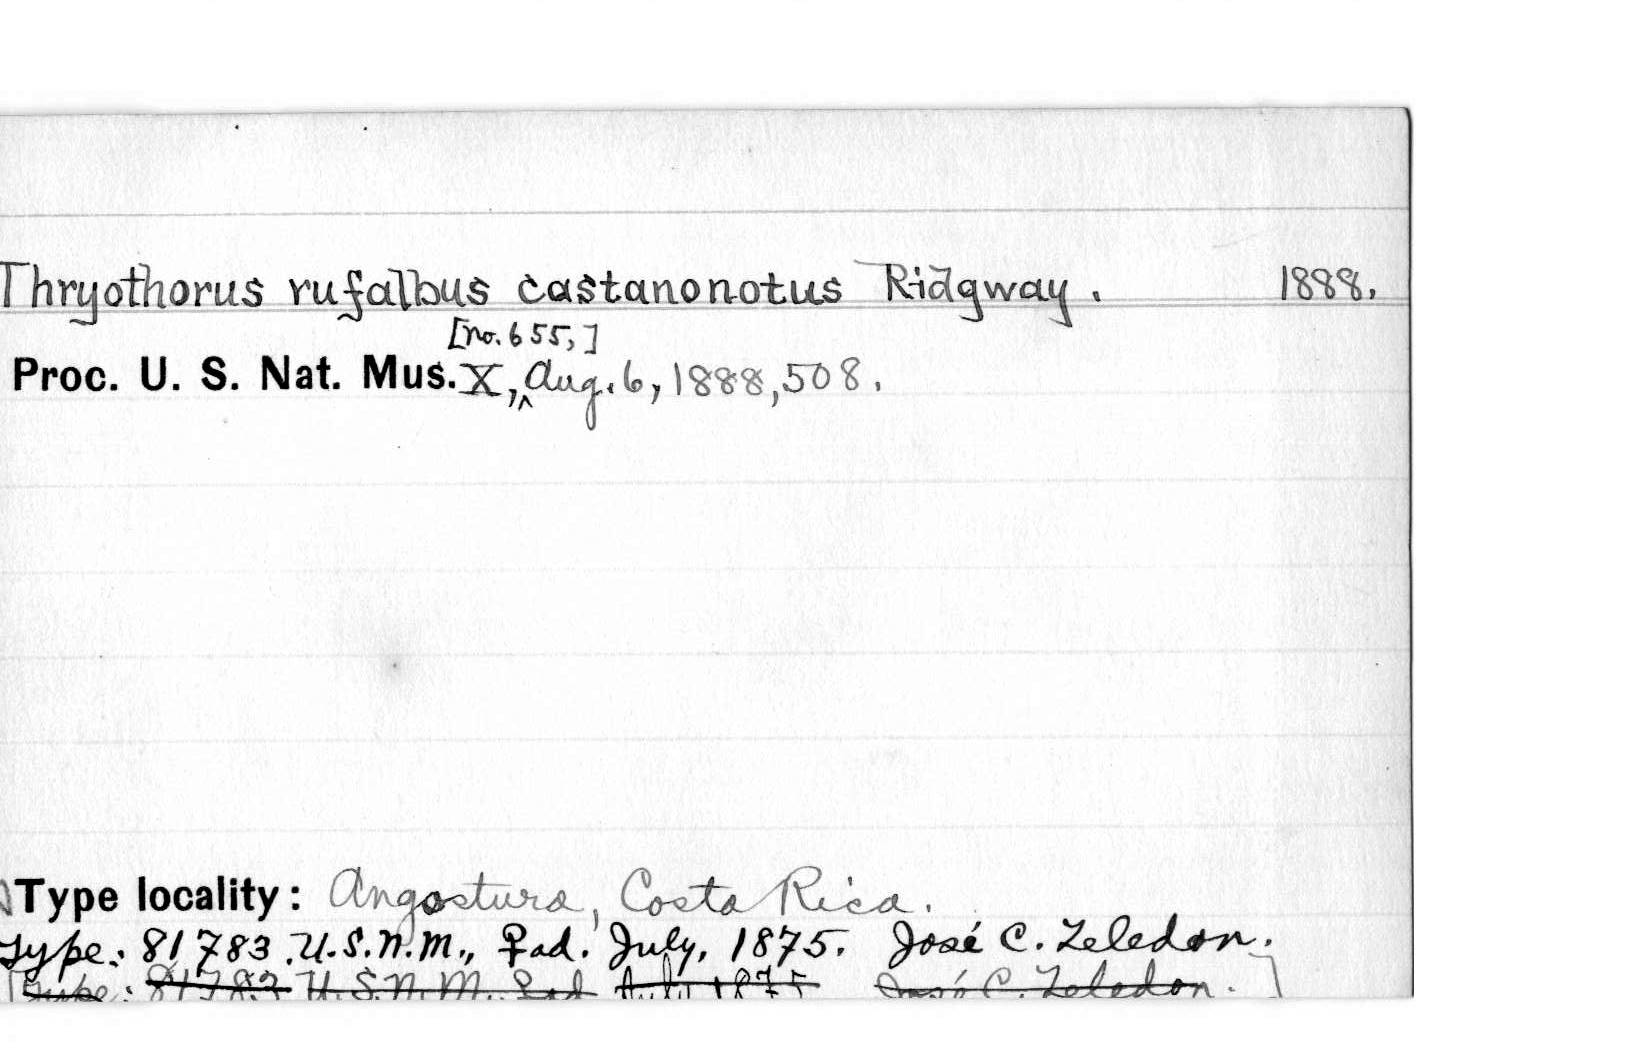 Thryothorus rufalbus castanonotus Ridgway. 1888.
[no. 655,]
Proc. U. S. Nat. Mus. X,^ Aug. 6, 1888, 508.
Type locality: Angostura, Costa Rica.
Type: 81783. U.S.N.M., ♀ ad. July, 1875. José C. Zeledon.
[Type: 81783 U.S.N.M. ♀ ad July 1875 José C. Zeledon.]